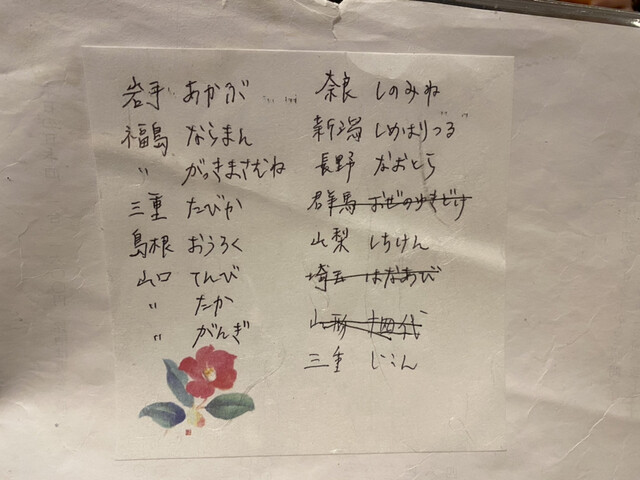 岩手 あかぶ
福島 ならまん
〃 がっきまさむね
三重 たびか
島根 おうろく
山口 てんび
〃 たか
〃 がんぎ
奈良 しのみね
新潟 しめはりづる
長野 なおとら
群馬 おぜのゆきどけ
山梨 しちけん
埼玉 はなあび
山形
三重 じこん